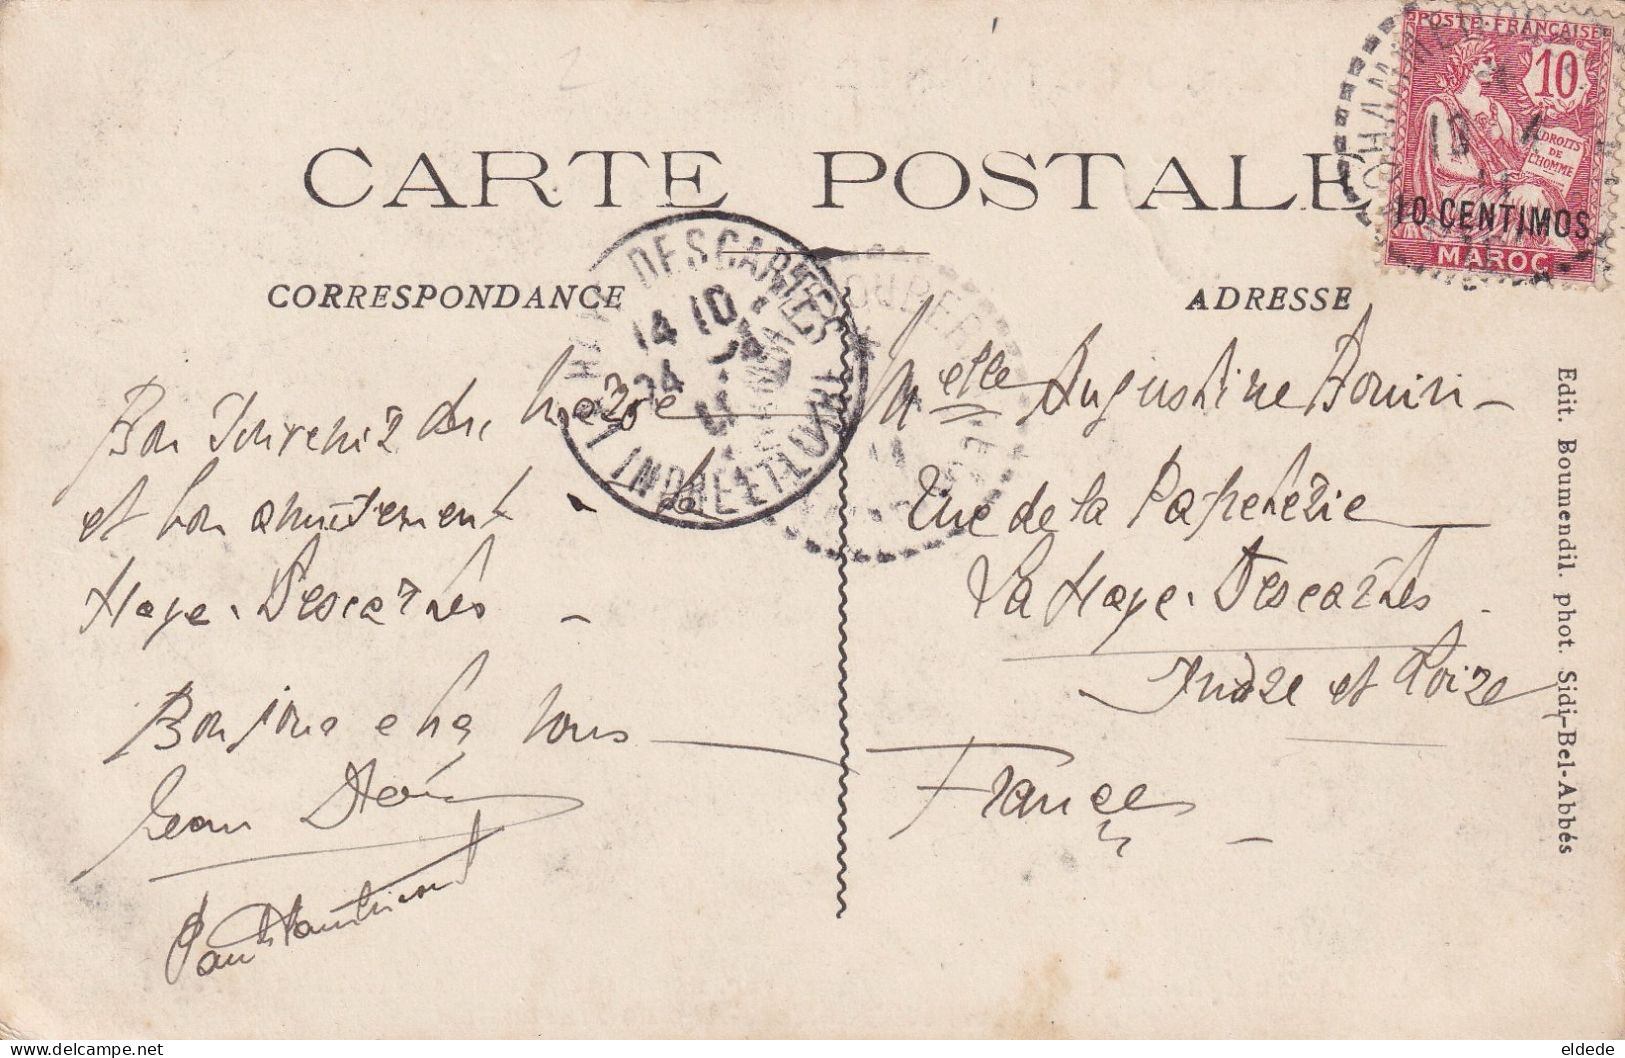 CARTE POSTALE
CORRESPONDANCE
ADRESSE
POSTE FRANÇAISE
10
DROITS
DE
L'HOMME
10 CENTIMOS
MAROC
DESCARTES
14 10
24
INDRE ET LOIRE
Bon Souvenir du
et bon amusement la
Haye-Descartes
Bonjour chez vous
Jean
Melle Augustine Bouin
Rue de la Papeterie
La Haye-Descartes
Indre et Loire
France
Edit. Boumendil. phot. Sidi-Bel-Abbés
eldede